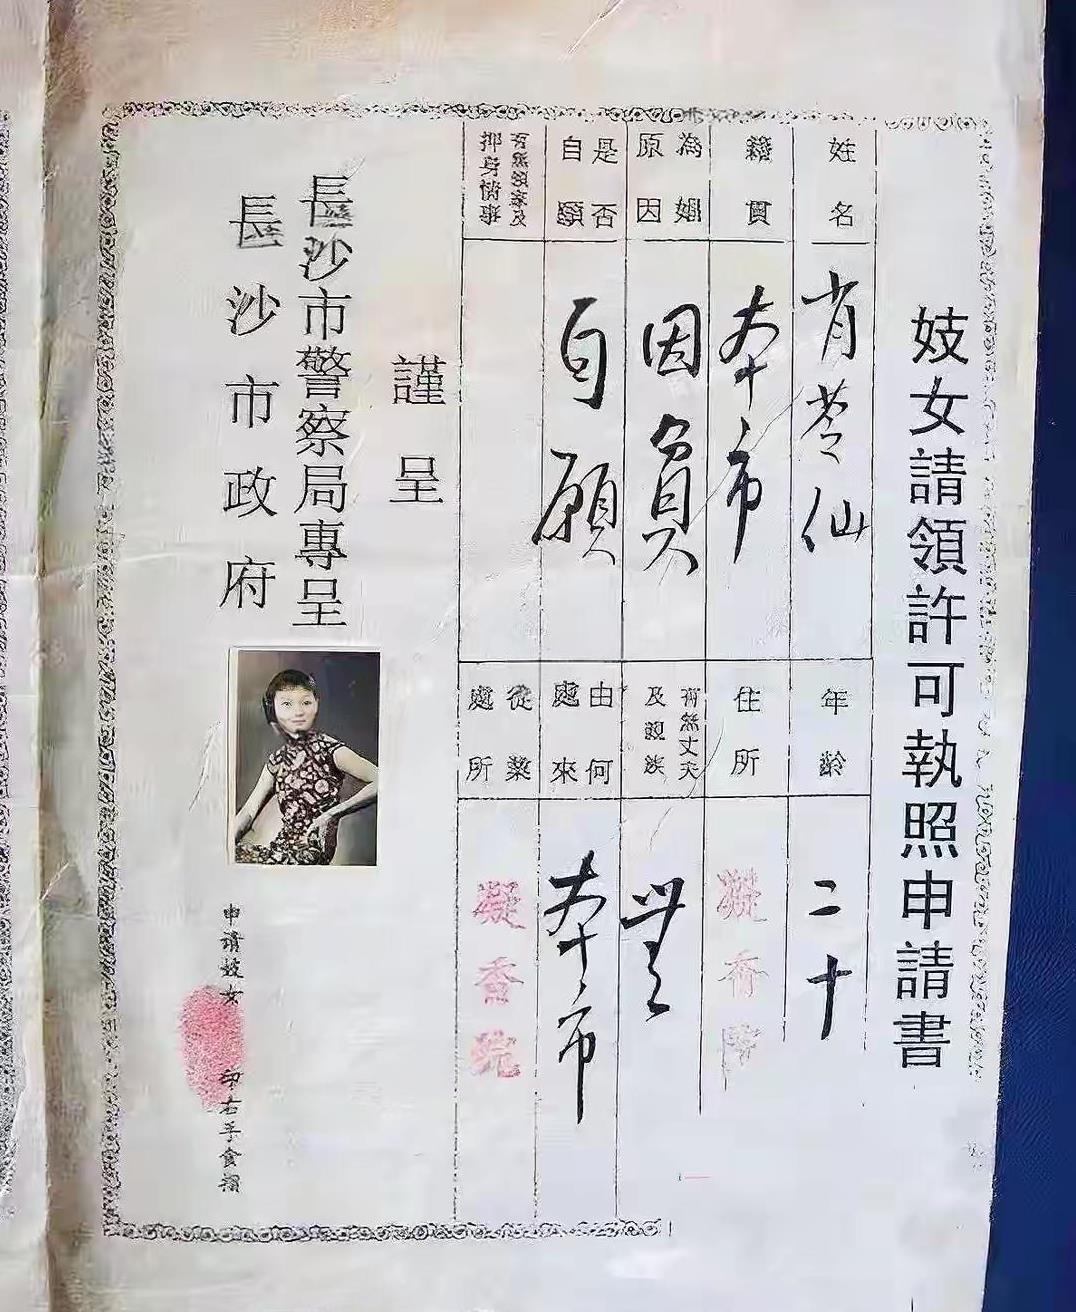 妓女請領許可執照申請書
姓名
肖苓仙
年齡
二十
籍貫
本市
住所
凝香院
為娼原因
因負欠
有無丈夫及親族
無
是否自願
自願
由何處來
本市
從業處所
凝香院
謹呈
長沙市警察局專呈
長沙市政府
申請妓女
印右手食